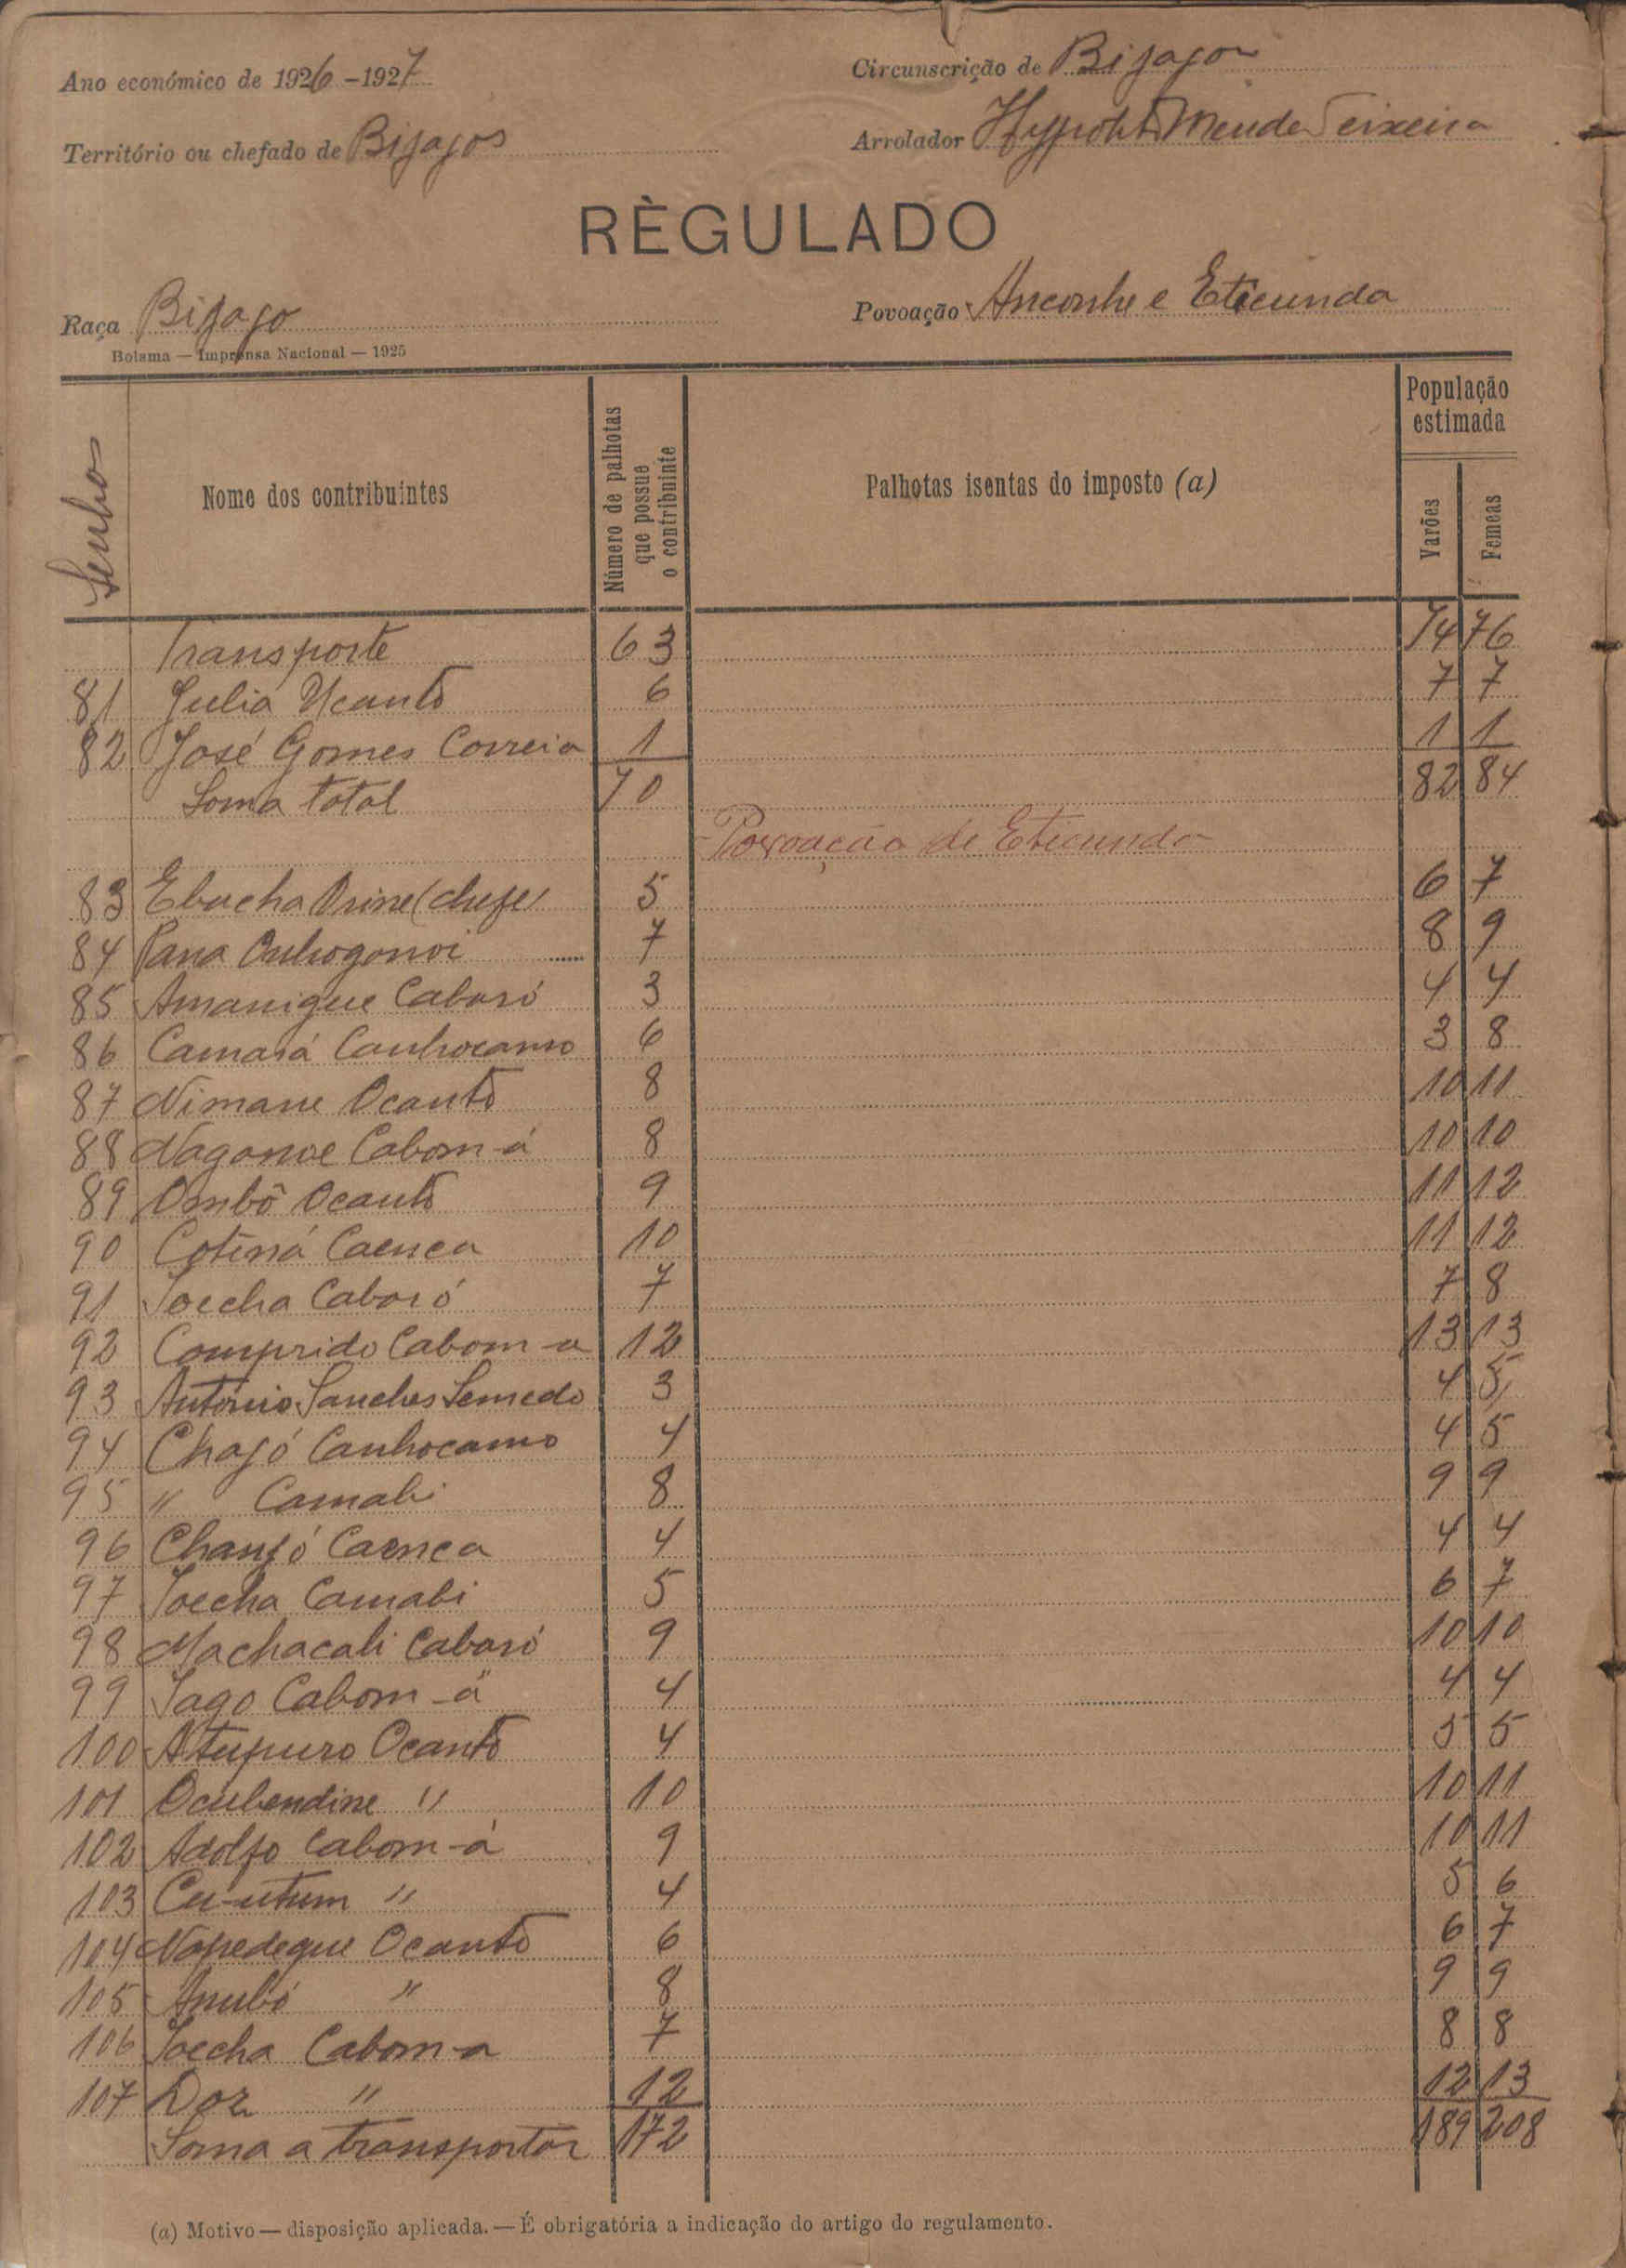 Ano económico de 1926-1927
Circunscrição de Bijagos
Território ou chefado de Bijagos
Arrolador Hypolito Mendes Teixeira
RÈGULADO
Raça Bijago
Povoação Anconhe e Eticunda
Bolama — Imprensa Nacional — 1925
Senhos
Nome dos contribuintes
Número de palhotas que possue o contribuinte
Palhotas isentas do imposto (a)
População estimada
Varões
Femeas
Transporte 63 74 76
81 Julia Ucantò 6 7 7
82 José Gomes Correia 1 1 1
Soma total 70 82 84
Povoação de Eticunda
83 Ebucha (chefe) 5 6 7
84 Pana 7 8 9
85 Amanigue Cabosó 3 4 4
86 Camasá Canhocamo 6 3 8
87 Nimane Ocantò 8 10 11
88 Nagonoe Cabom-á 8 10 10
89 Ombô Ocantò 9 11 12
90 Cotiná Caenca 10 11 12
91 Joecha Cabosó 7 7 8
92 Comprido Cabom-a 12 13 13
93 António Sanches Semedo 3 4 5
94 Chajó Canhocamo 4 4 5
95 " Camabi 8 9 9
96 Chanjó Caenca 4 4 4
97 Joecha Camabi 5 6 7
98 Machacali Cabosó 9 10 10
99 Iago Cabom-á 4 4 4
100 Atupuro Ocantò 4 5 5
101 Ocubendine " 10 10 11
102 Adolfo Cabom-á 9 10 11
103 Cu-utum " 4 5 6
104 Napedegue Ocantò 6 6 7
105 Anubó " 8 9 9
106 Joecha Cabom-a 7 8 8
107 Doz " 12 12 13
Soma a transportar 172 189 208
(a) Motivo — disposição aplicada. — É obrigatória a indicação do artigo do regulamento.